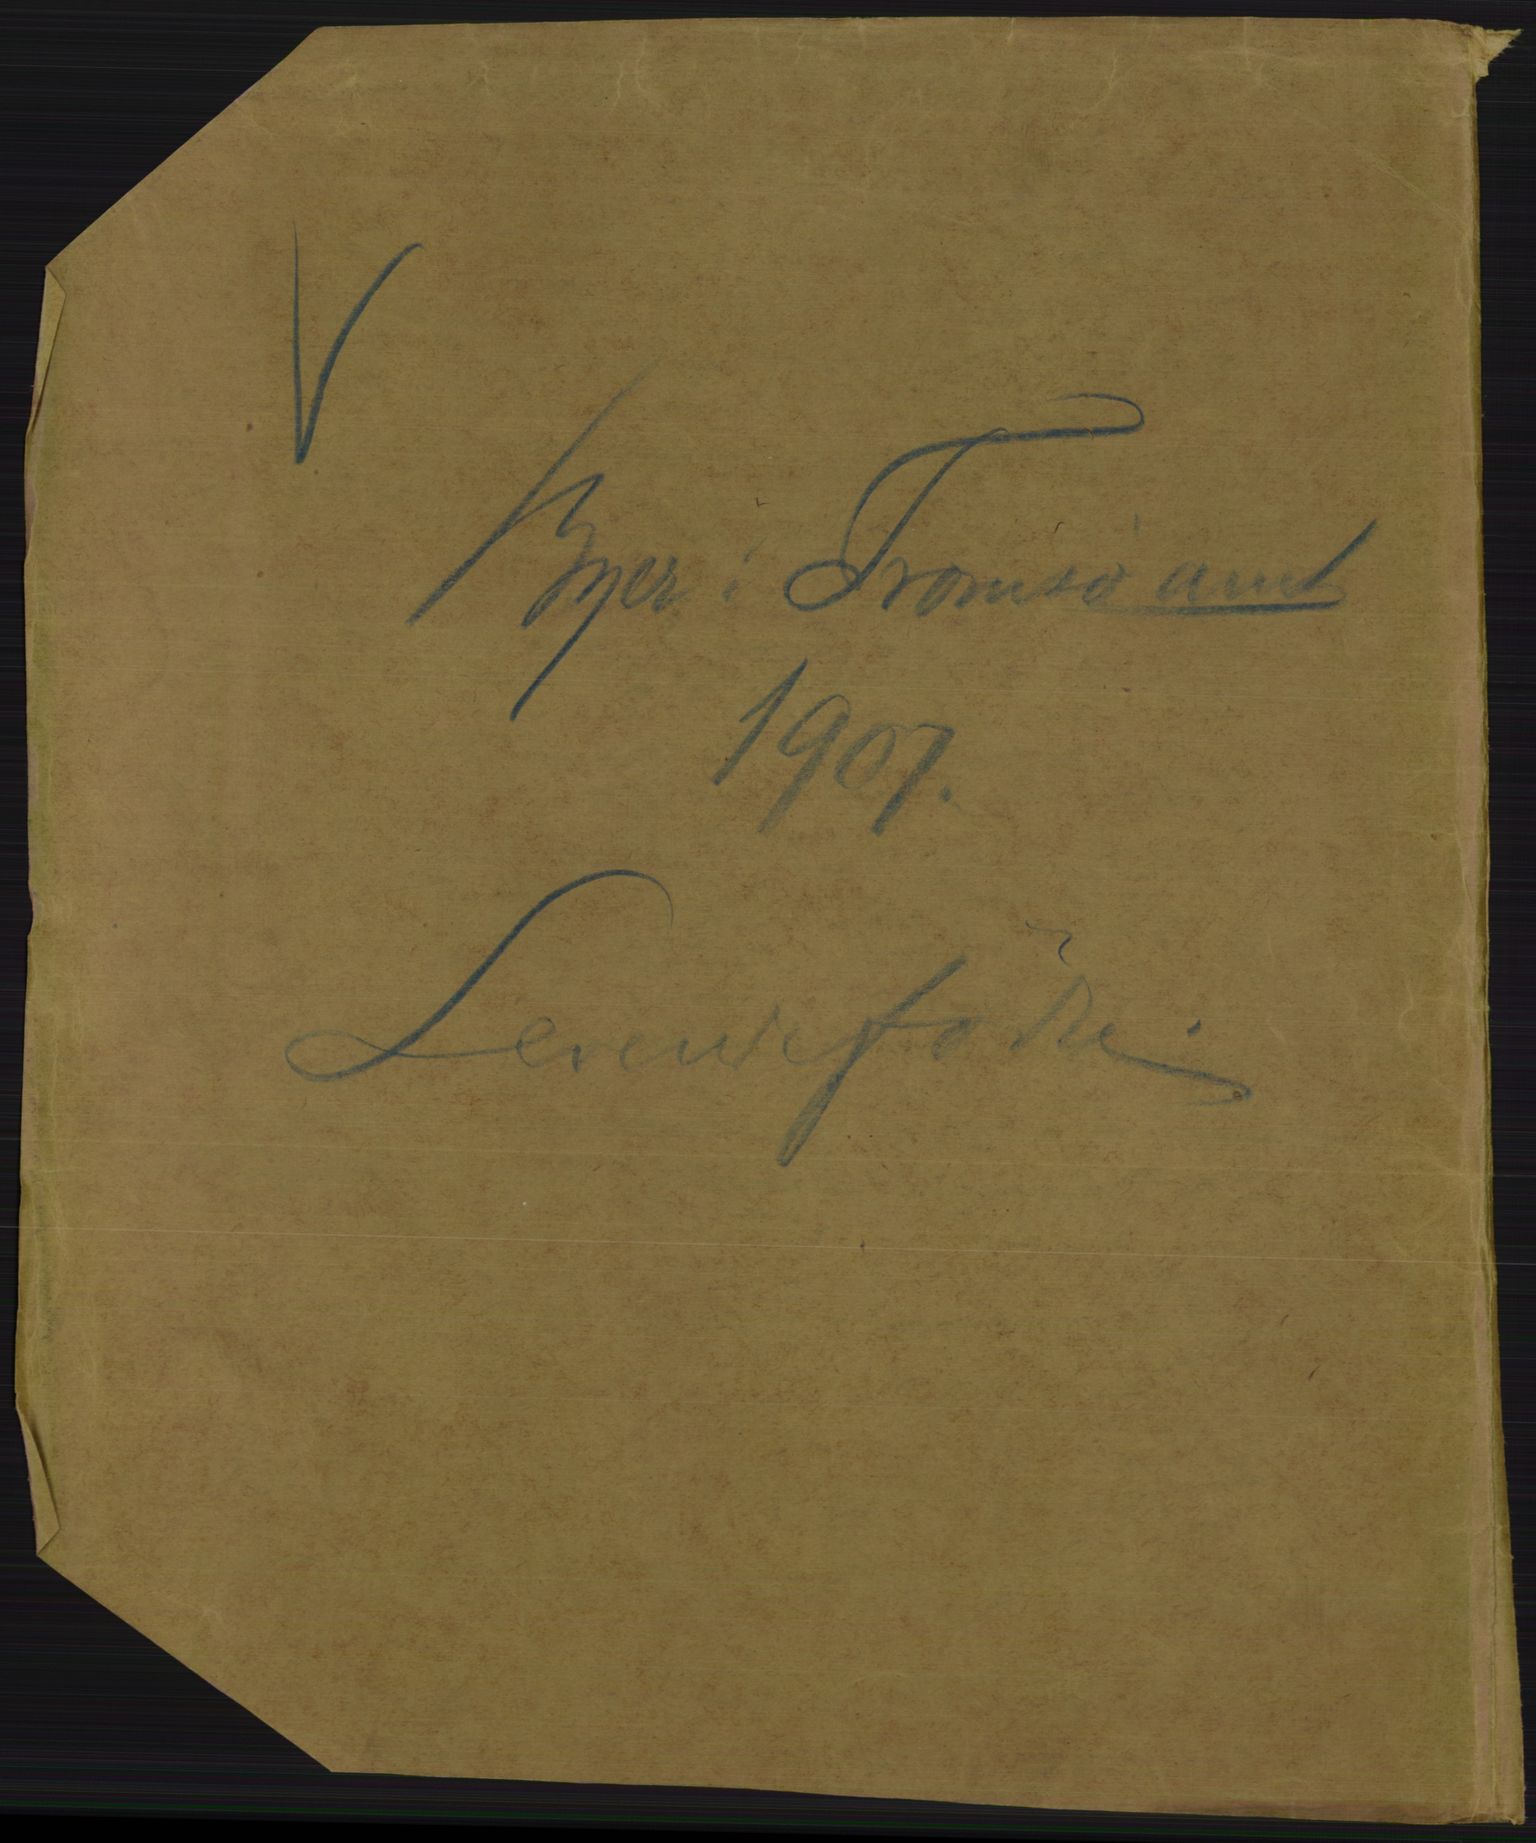 V
Byer i Tromsø amt
1907.
Levendefødte.